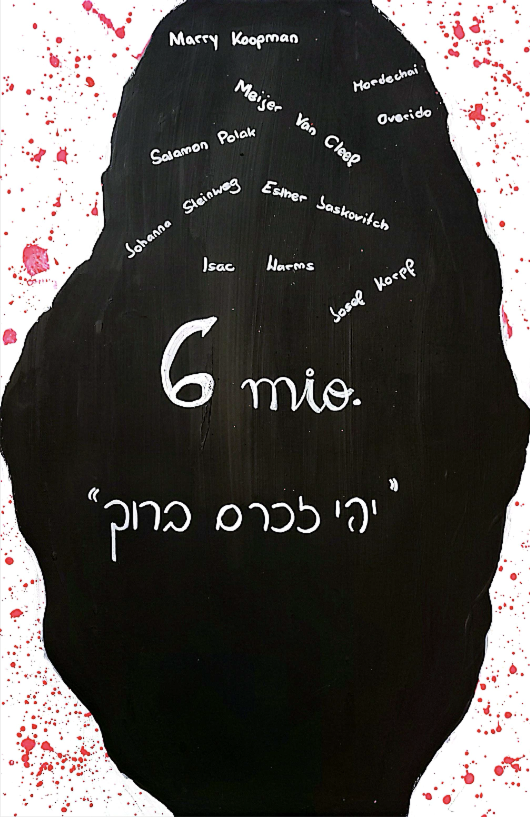 Marry Koopman
Mordechai
Overido
Meijer Van Cleef
Salamon Polak
Johanna Steinweg
Esther Jaskovitch
Isac Warms
Josef Korpf
6 mio.
"יהי זכרם ברוך"